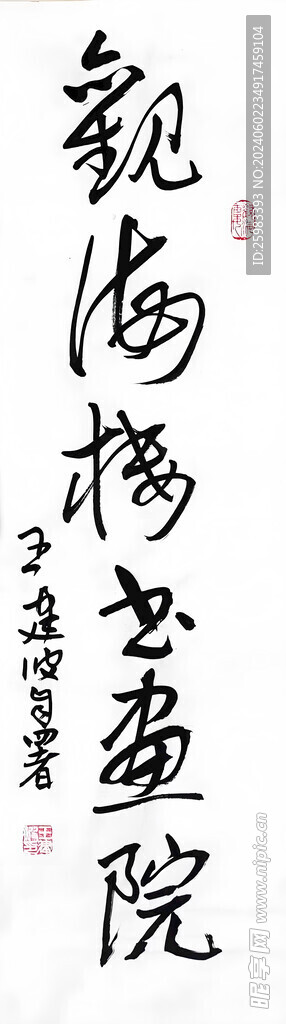 觀海楼书画院
王建波自署
ID:25985393 NO:20240602234917459104
昵享网 www.nipic.cn